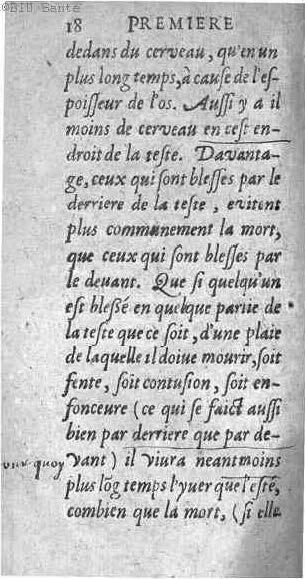 ©BIU Santé
18 PREMIERE
dedans du cerveau, qu'en un
plus long temps, à cause de l'es-
poisseur de l'os. Aussi y a il
moins de cerveau en cest en-
droit de la teste. Davanta-
ge, ceux qui sont blesses par le
derriere de la teste, evitent
plus communement la mort,
que ceux qui sont blesses par
le devant. Que si quelqu'un
est blessé en quelque partie de
la teste que ce soit, d'une plaie
de laquelle il doiue mourir, soit
fente, soit contusion, soit en-
fonceure (ce qui se faict aussi
bien par derriere que par de-
vant) il viura neantmoins
plus lõg temps l'yuer que l'esté,
combien que la mort, (si elle